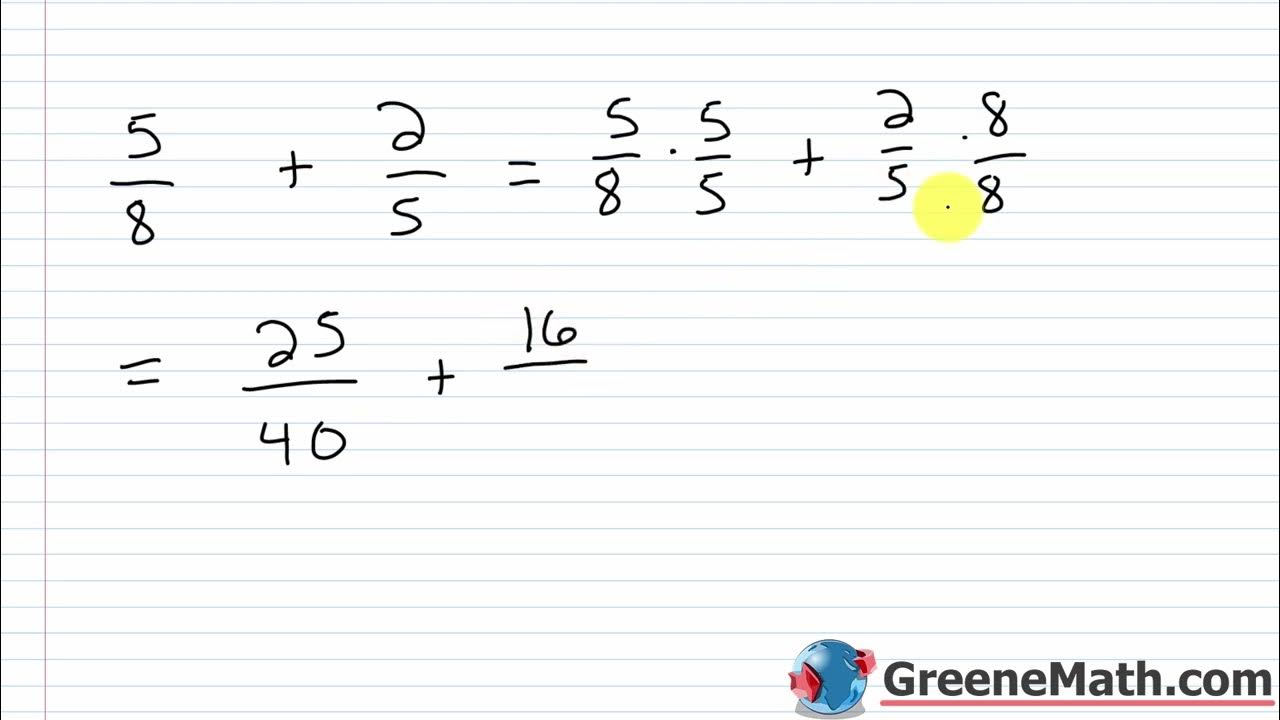 5/8 + 2/5 = 5/8 · 5/5 + 2/5 · 8/8
= 25/40 + 16/
GreeneMath.com